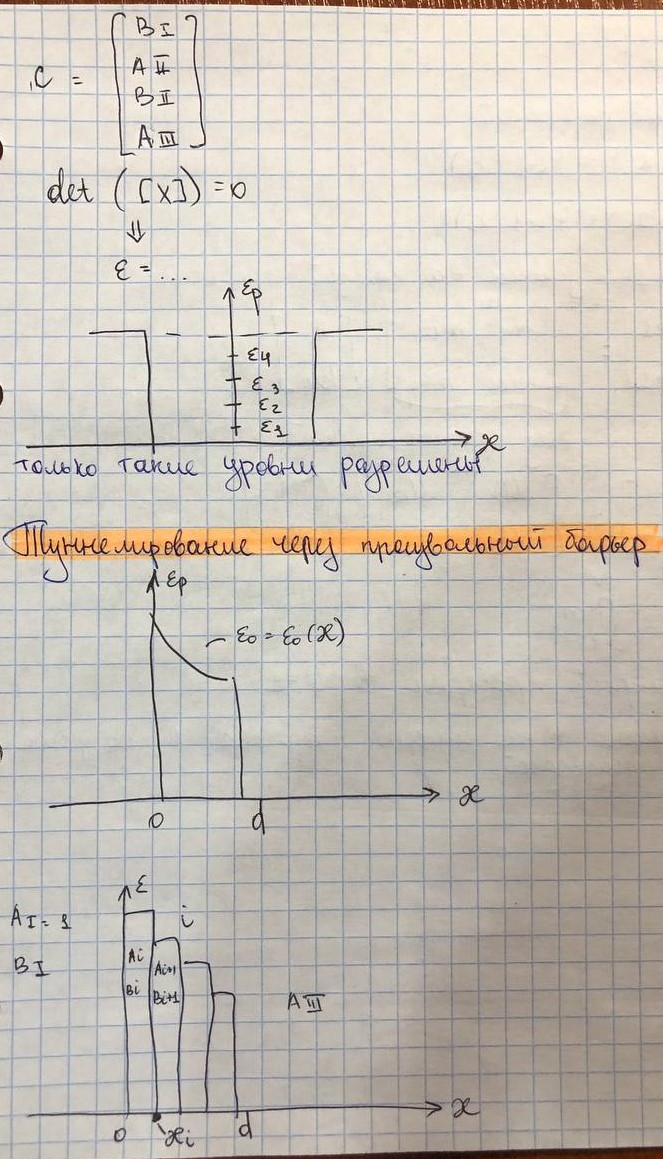 C = [B I
A II
B II
A III]
det ([X]) = 0
⇓
ε = ...
εp
ε4
ε3
ε2
ε1
x
только такие уровни разрешены
Туннелирование через произвольный барьер
εp
ε0 = ε0 (x)
x
0 d
ε
A I = 1
i
B I
Ai
Bi
Ai+1
Bi+1
A III
x
0 xi d